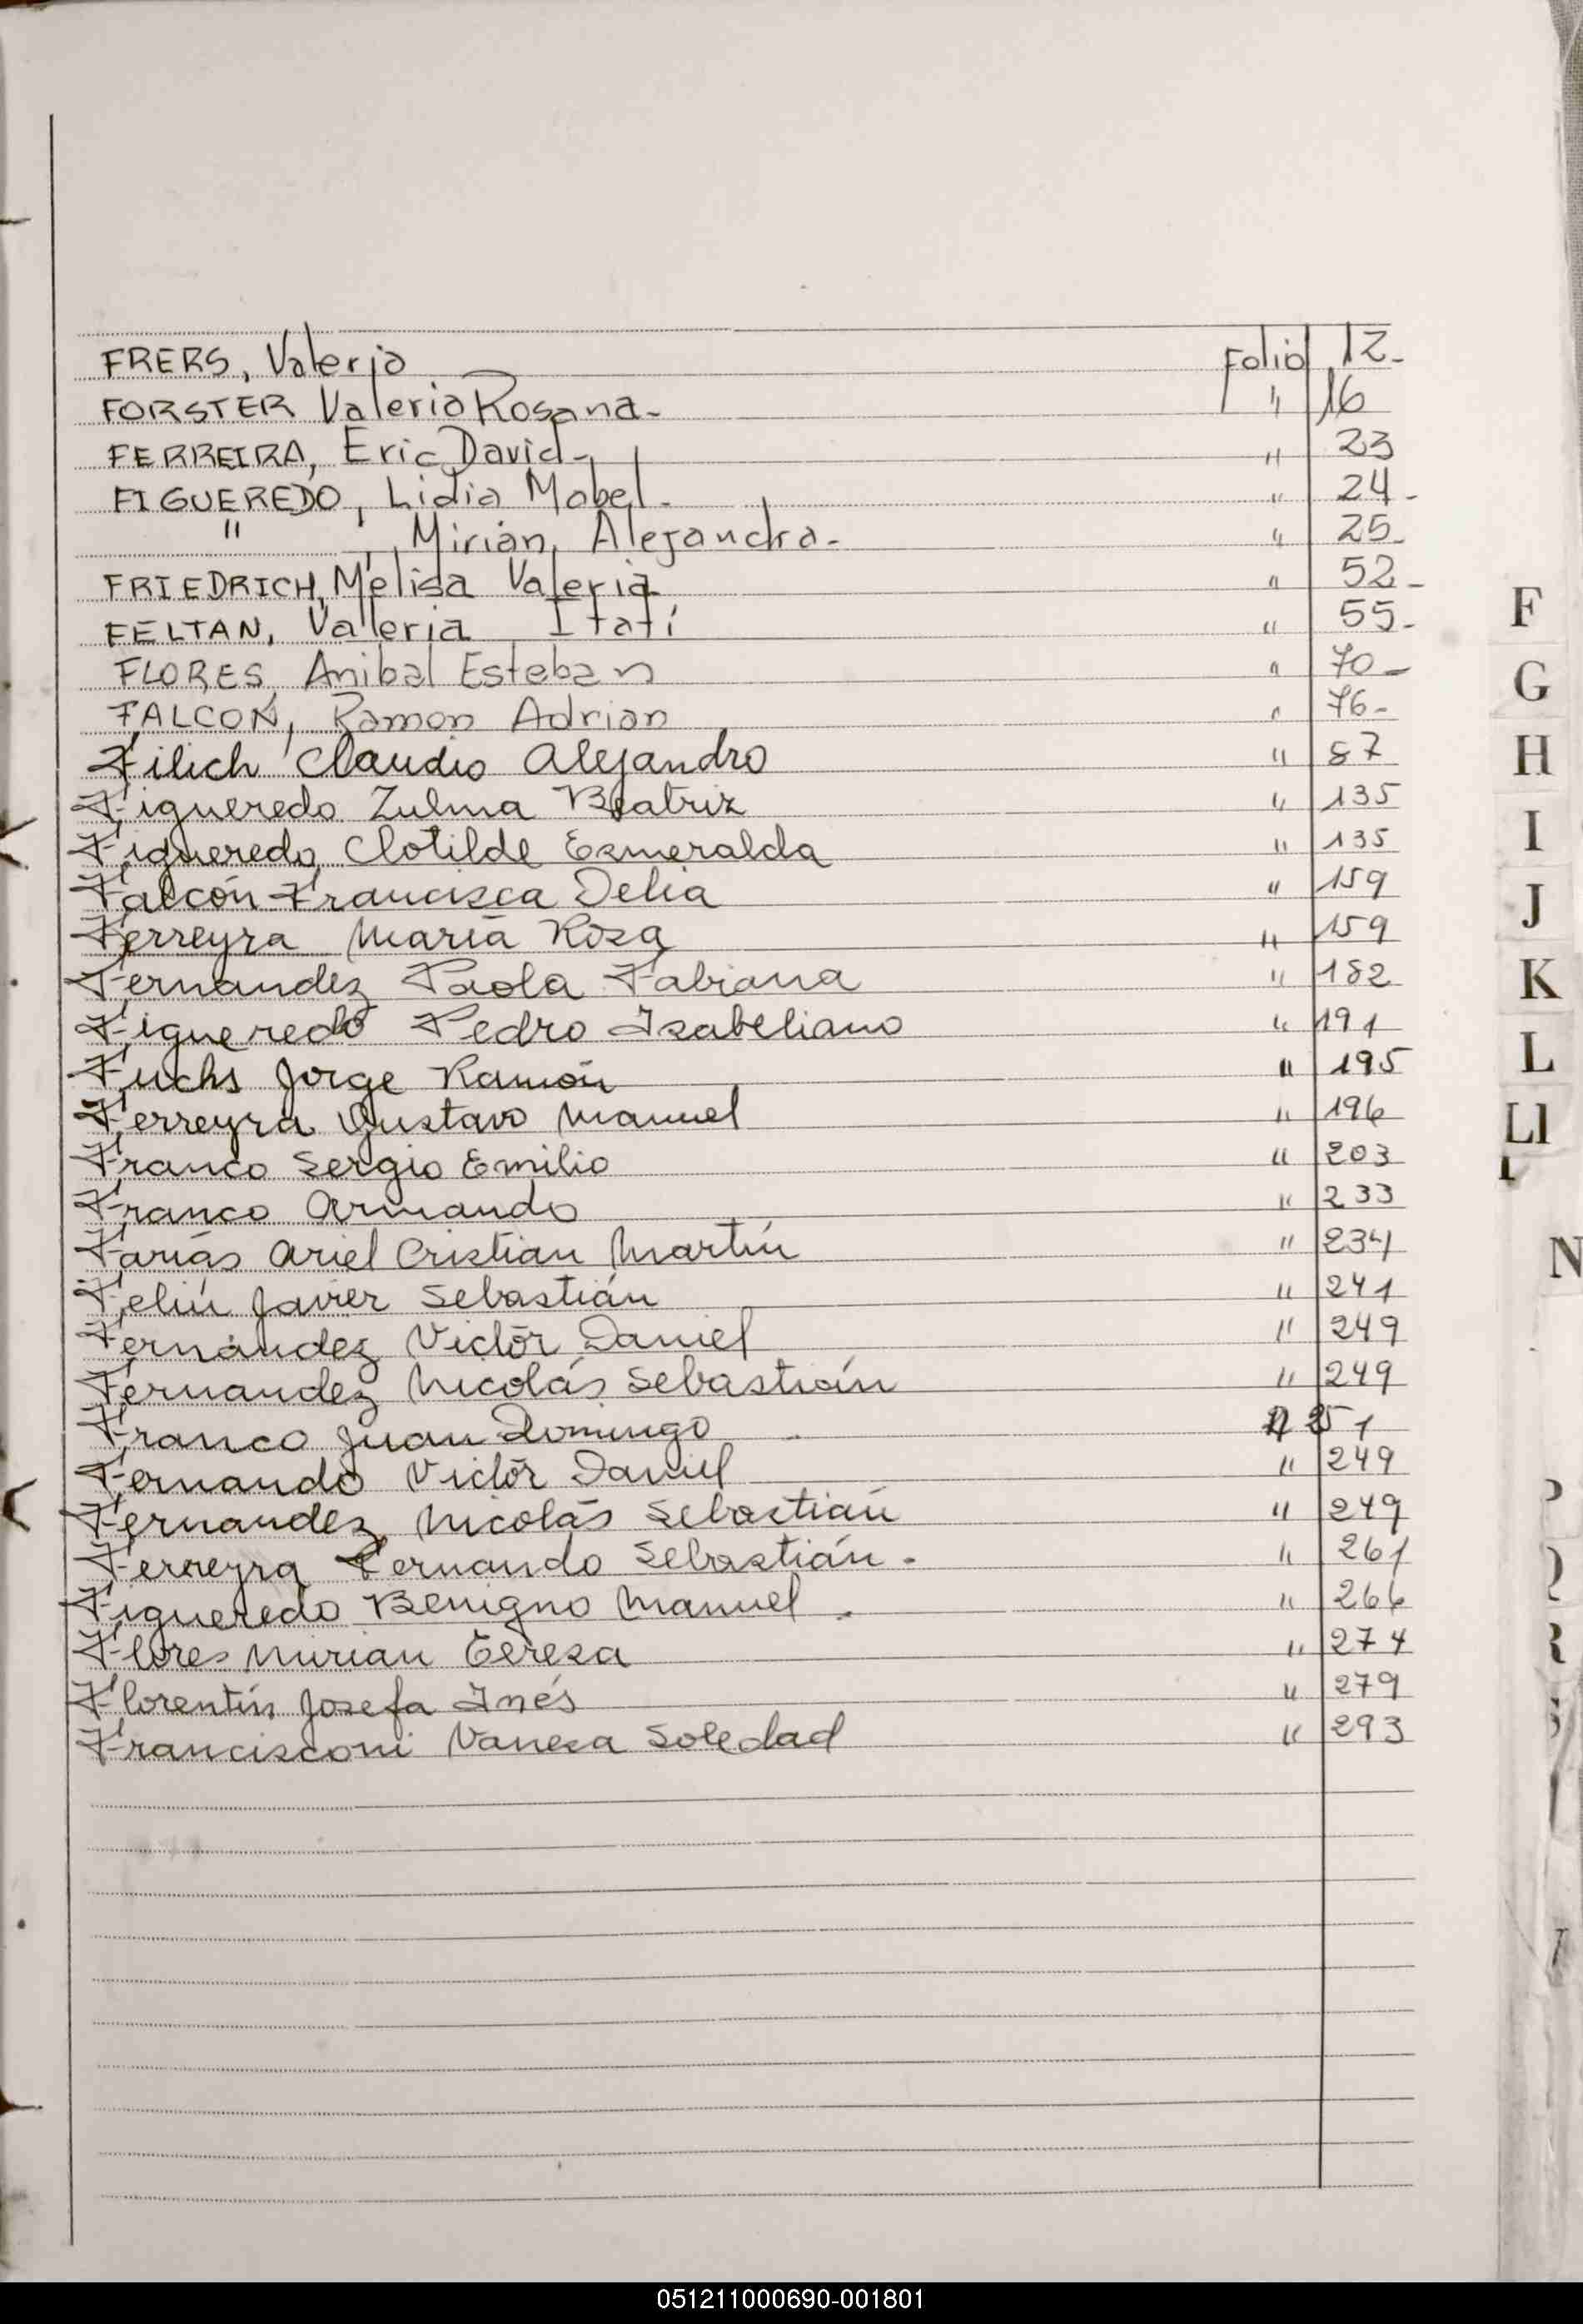 FRERS, Valeria Folio 12-
FORSTER Valeria Rosana- " 16
FERREIRA, Eric David- " 23
FIGUEREDO, Lidia Mabel- " 24-
" , Mirian Alejandra- " 25-
FRIEDRICH, Melisa Valeria " 52-
FELTAN, Valeria Itatí " 55-
FLORES, Anibal Esteban " 70-
FALCON, Ramon Adrian " 76-
Filich Claudio Alejandro " 87
Figueredo Zulma Beatriz " 135
Figueredo Clotilde Esmeralda " 135
Falcón Francisca Delia " 159
Ferreyra María Rosa " 159
Fernandez Paola Fabiana " 182
Figueredo Pedro Isabeliano " 191
Fuchs Jorge Ramón " 195
Ferreyra Gustavo Manuel " 196
Franco Sergio Emilio " 203
Franco Armando " 233
Farías Ariel Cristian Martín " 234
Feliú Javier Sebastián " 241
Fernández Victór Daniel " 249
Fernandez Nicolás Sebastián " 249
Franco Juan Domingo " 251
Fernando Victór Daniel " 249
Fernandez Nicolás Sebastian " 249
Ferreyra Fernando Sebastián. " 261
Figueredo Benigno Manuel. " 266
Flores Mirian Teresa " 274
Florentín Josefa Inés " 279
Francisconi Vanesa Soledad " 293
F
G
H
I
J
K
L
Ll
N
051211000690-001801